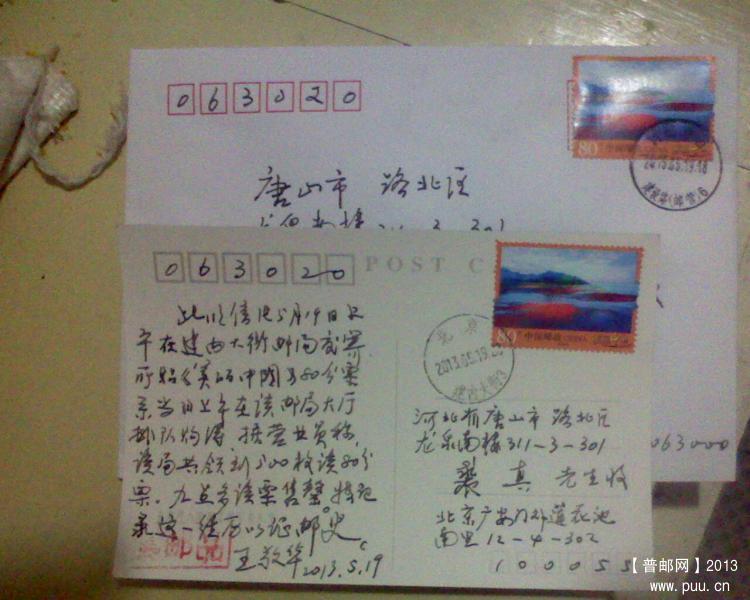 063020
80
中国邮政
2013.05.19.18
唐山市 路北区
063020
POST C
80
中国邮政 CHINA
北京
2013.05.19
此明信片5月19日上
午在建西大街邮局寄
所贴《美丽中国》80分票
系当日上午在该邮局大厅
排队购得 据营业员称
该局共领到500枚该80分
票。九点多该票售罄。特记
录这一经历以证邮史。
王敬华
2013.5.19
河北省唐山市 路北区
龙泉南楼311-3-301
裴 真 先生收
北京广安门外莲花池
南里 12-4-302
100055
063000
【普邮网】2013
www.puu.cn